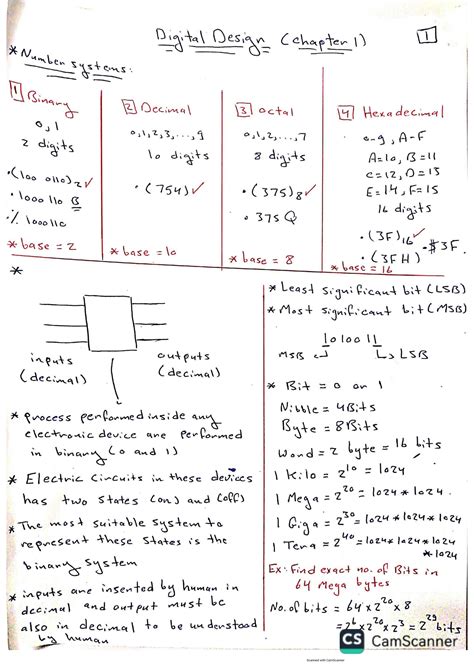 Digital Design (chapter 1)
1
* Number systems:
1 Binary
0, 1
2 digits
• (100 0110)2 ✓
• 1000110 B
• % 100011C
* base = 2
2 Decimal
0,1,2,3,...,9
10 digits
• (754) ✓
* base = 10
3 octal
0,1,2,...,7
8 digits
• (375)8 ✓
• 375 Q
* base = 8
4 Hexadecimal
0-9, A-F
A=10, B=11
C=12, D=13
E=14, F=15
16 digits
• (3F)16 ✓ • $3F
• (3FH)
* base = 16
*
inputs
(decimal)
outputs
(decimal)
* process performed inside any
electronic device are performed
in binary (0 and 1)
* Electric Circuits in these devices
has two states (on) and (off)
* The most suitable system to
represent these states is the
binary system
* inputs are inserted by human in
decimal and output must be
also in decimal to be understood
by human
* Least significant bit (LSB)
* Most significant bit (MSB)
1010011
MSB LSB
* Bit = 0 or 1
Nibble = 4Bits
Byte = 8Bits
Word = 2 byte = 16 bits
1 Kilo = 2^10 = 1024
1 Mega = 2^20 = 1024 * 1024
1 Giga = 2^30 = 1024 * 1024 * 1024
1 Tera = 2^40 = 1024 * 1024 * 1024
* 1024
Ex: Find exact no. of Bits in
64 Mega bytes
No. of bits = 64 x 2^20 x 8
= 2^6 x 2^20 x 2^3 = 2^29 bits
CS CamScanner